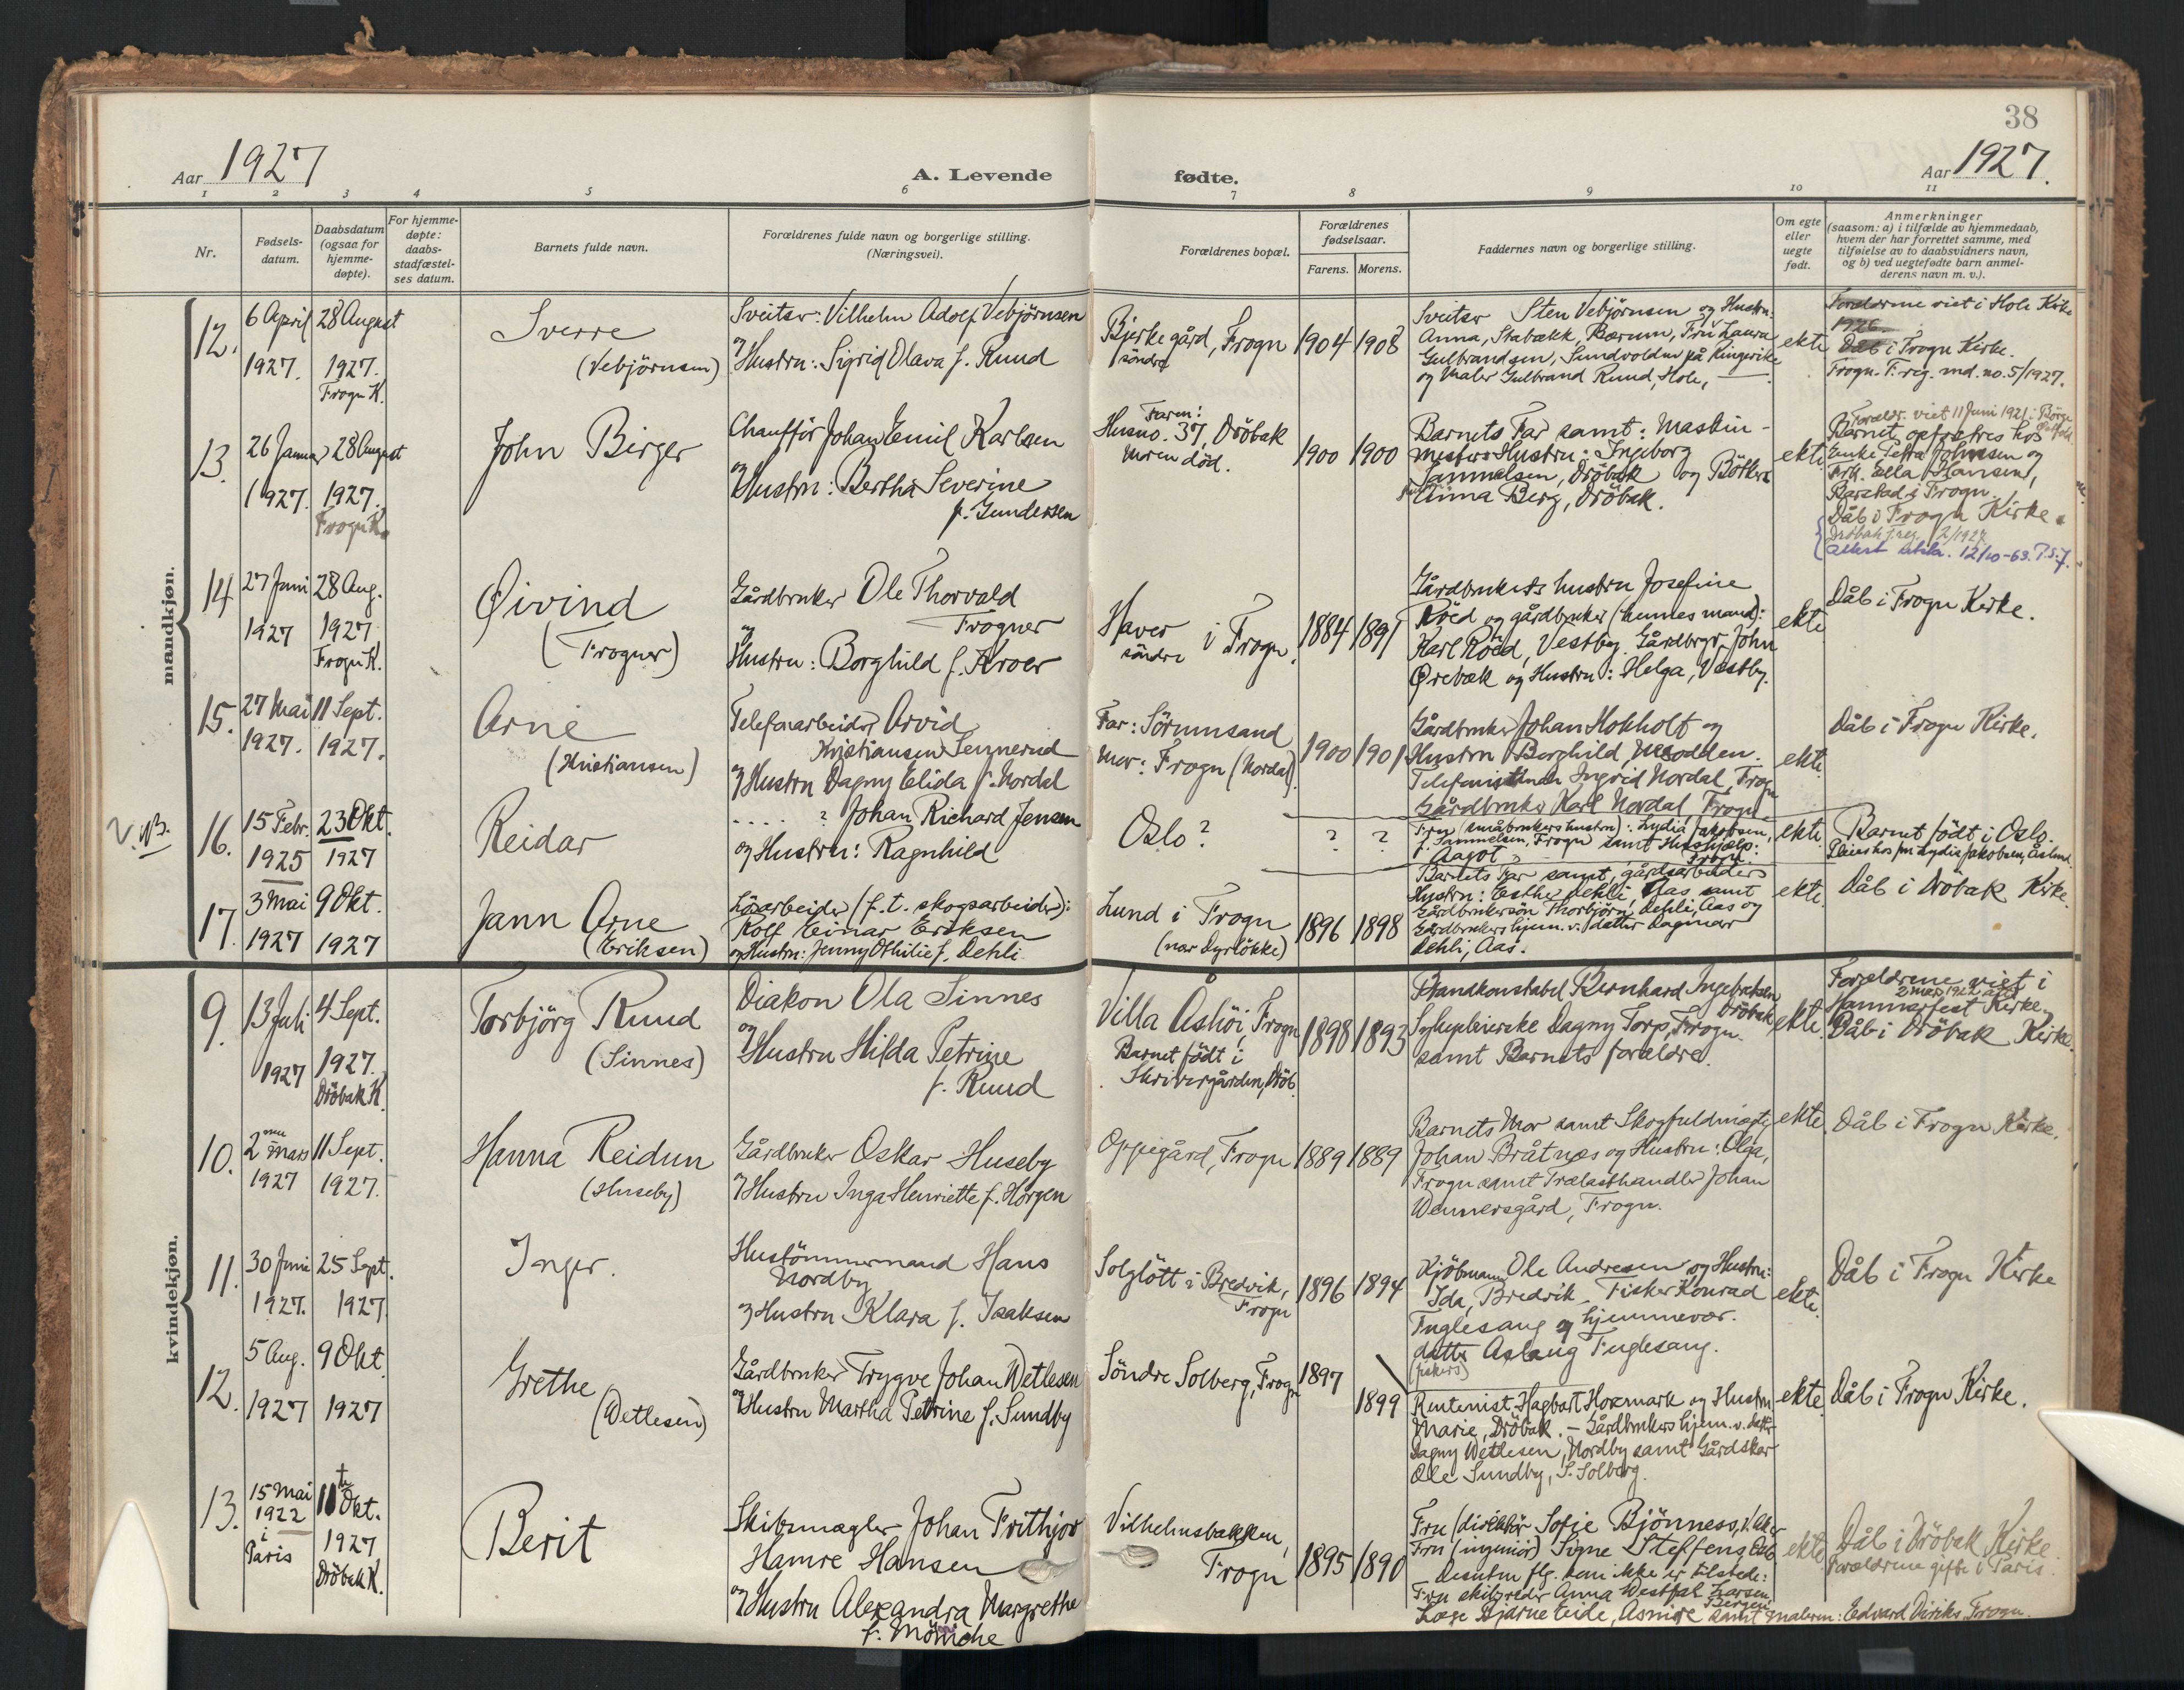 38
Aar 1927
A. Levende fødte.
Aar 1927.
1 2 3 4 5 6 7 8 9 10 11
Nr.
Fødsels-
datum.
Daabsdatum
(ogsaa for
hjemme-
døpte).
For hjemme-
døpte:
daabs-
stadfæstel-
ses datum.
Barnets fulde navn.
Forældrenes fulde navn og borgerlige stilling.
(Næringsvei).
Forældrenes bopæl.
Forældrenes
fødselsaar.
Farens. Morens.
Faddernes navn og borgerlige stilling.
Om egte
eller
uegte
født.
Anmerkninger
(saasom: a) i tilfælde av hjemmedaab,
hvem der har forrettet samme, med
tilføielse av to daabsvidners navn,
og b) ved uegtefødte barn anmel-
derens navn m. v.).
mandkjøn.
12.
6 April
1927.
28 August
1927.
Frogn K.
Sverre
(Vebjörnsen)
Sveitser: Vilhelm Adolf Vebjörnsen
og Hustru: Sigrid Olava f. Ruud
Bjerke gård, Frogn
söndre
1904 1908
Sveitser Sten Vebjörnsen og Hustru
Anna, Stabækk, Bærum, Fru Laura
Gulbrandsen, Sundvolden på Ringerike
og Maler Gulbrand Ruud, Hole,
ekte
Forældrene viet i Hole Kirke
1926.
Dåb i Frogn Kirke.
Frogn F. reg. md. no. 5/1927.
13.
26 Januar
1927.
28 August
1927.
Frogn K.
John Birger
Chaufför Johan Emil Karlsen
og Hustru: Bertha Severine
f. Gundersen
Faren:
Husno. 37, Dröbak
Moren död.
1900 1900
Barnets Far samt: Maskin-
mesters Hustru: Ingeborg
Sammelsen, Dröbak og Bötkers
Anna Berg, Dröbak.
ekte
Foreldr. viet 11 Juni 1921 i Borge
Barnet opfostres hos
Enke Petra Johnsen og
Frk. Ella Hansen,
Barstad i Frogn.
Dåb i Frogn Kirke.
Dröbak F.reg. 2/1927.
Attest 12/10-63.
14
27 Juni
1927
28 Aug.
1927
Frogn K.
Øivind
(Frogner)
Gårdbruker Ole Thorvald
Frogner
og
Hustru: Borghild f. Kroer
Haver i Frogn.
söndre
1884 1891
Gårdbrukers hustru Josefine
Röed og gårdbruker (hennes mand):
Karl Röed, Vestby. Gårdbrgr. John
Ørebæk og Hustru: Helga, Vestby.
ekte
Dåb i Frogn Kirke.
15.
27 Mai
1927.
11 Sept.
1927.
Arne
(Kristiansen)
Telefonarbeider Arvid
Kristiansen Sennerud
og Hustru Dagny Elida f. Nordal
Far: Sörumsand
Mor: Frogn (Nordal)
1900 1901
Gårdbruker Johan Holtholt og
Hustru Borghild,
Telefonistinde Ingrid Nordal, Frogn
Gårdbruker Karl Nordal, Frogn
ekte.
Dåb i Frogn Kirke.
NB.
16.
15 Febr.
1925
23 Okt.
1927
Reidar
.... ? Johan Richard Jensen
og Hustru: Ragnhild
Oslo?
? ?
Fru (småbrukers hustru): Lydia Jakobsen,
f. Sammelsen, Frogn samt Hushjælp:
Aagot Frogn
ekte.
Barnet födt i Oslo.
Pleies hos fru Lydia Jakobsen,
17.
3 Mai
1927
9 Okt.
1927
Jann Arne
(Eriksen)
Lösarbeider (f.t. skogsarbeider):
Rolf Einar Eriksen
og Hustru: Jenny Othilie f. Dehli
Lund i Frogn
(nær Dyrlökke)
1896 1898
Barnets Far samt, gårdsarbeiders
Hustru: Esther Dehli, Aas, samt
Gårdbrukersön Thorbjörn Dehli, Aas og
Gårdbrukers hjem.v. datter Dagmar
Dehli, Aas.
ekte.
Dåb i Dröbak Kirke.
kvindekjøn.
9.
13 Juli
1927
4 Sept.
1927.
Dröbak K.
Torbjörg Ruud
(Sinnes)
Diakon Ola Sinnes
og
Hustru Hilda Petrine
f. Ruud
Villa Åshöi, Frogn
Barnet födt i
Skrivergården, Dröb.
1898 1893
Brandkonstabel Bernhard Ingebretsen,
Dröbak
Sykepleierske Dagny Torp, Frogn.
samt Barnets forældre.
ekte.
Forældrene viet i
Hammerfest Kirke,
Dåb i Dröbak Kirke.
10.
2 Mars
1927
11 Sept.
1927.
Hanna Reidun
(Huseby)
Gårdbruker Oskar Huseby
og Hustru Inga Henriette f. Horgen
Oppegård, Frogn
1889 1889
Barnets Mor samt Skogfuldmægtig
Johan Bråtnæs og Hustru: Olga,
Frogn samt Trælasthandler Johan
Wennersgård, Frogn.
ekte.
Dåb i Frogn Kirke.
11.
30 Juni
1927.
25 Sept.
1927
Inger.
Hustömmermand Hans
Nordby
og Hustru Klara f. Isaksen
Solglött i Bredvik,
Frogn
1896 1894
Kjöbmann Ole Andresen og Hustru:
Ida, Bredvik. Fisker Konrad
Fuglesang og hjemmevær.
datter Aslaug Fuglesang.
(fiskers)
ekte.
Dåb i Frogn Kirke
12.
5 Aug.
1927
9 Okt.
1927
Grethe
(Wetlesen)
Gårdbruker Trygve Johan Wetlesen
og Hustru Martha Petrine f. Sundby
Söndre Solberg, Frogn
1897
1899
Rentenist Hagbart Hoxmark og Hustru
Marie, Dröbak. – Gårdbrukers hjem.v. datter
Dagny Wetlesen, Nordby samt Gårdskar
Ole Sundby, S. Solberg.
ekte.
Dåb i Frogn Kirke.
13.
15 Mai
1922
i
Paris
Okt.
1927
Dröbak K.
Berit
Skibsmægler Johan Frithjov
Hamre Hansen
og Hustru Alexandra Margrethe
f. Mönche
Vilhelmsbakken,
Frogn
1895 1890
Fru (direktör) Sofie Bjönness, V. Aker
Fru (ingeniör) Signe Steffens, Oslo
Desuten flg. som ikke er tilstede:
Fru skibsreder Anna Westfal Larsen,
Bergen
Læge Bjarne Eide, samt maleren: Edvard Diriks, Frogn.
ekte
Dåb i Dröbak Kirke.
Forældrene gifte i Paris.